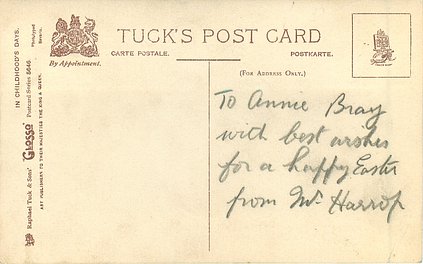 TUCK'S POST CARD
CARTE POSTALE.
POSTKARTE.
By Appointment.
(FOR ADDRESS ONLY.)
To Annie Bray
with best wishes
for a happy Easter
from Mr. Harrop
IN CHILDHOOD'S DAYS.
Phototyped
Saxony.
Raphael Tuck & Sons' "Glosso" Postcard Series 8646
ART PUBLISHERS TO THEIR MAJESTIES THE KING & QUEEN.